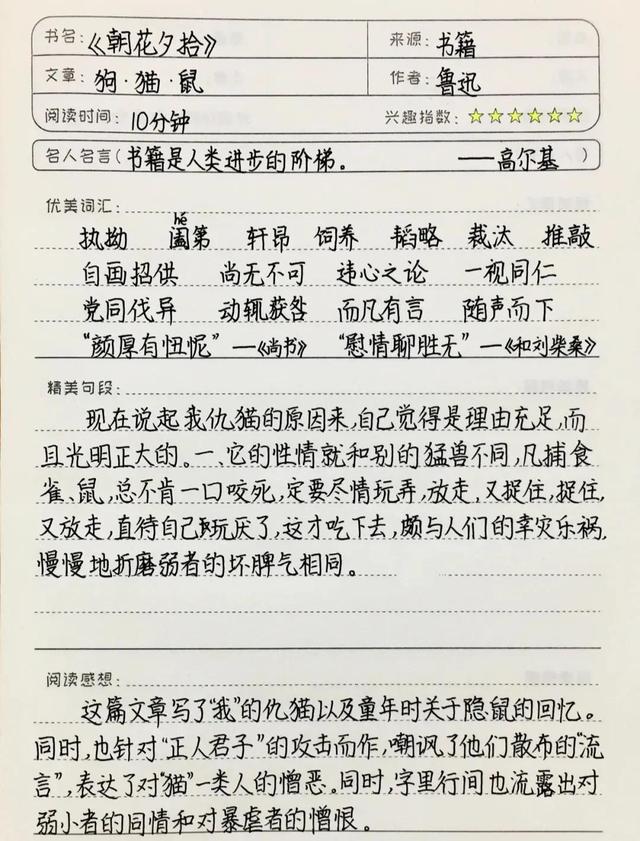 书名：《朝花夕拾》 来源：书籍
文章：狗·猫·鼠 作者：鲁迅
阅读时间：10分钟 兴趣指数：☆☆☆☆☆☆
名人名言（书籍是人类进步的阶梯。 ——高尔基）
优美词汇：
hé
执拗 阖第 轩昂 饲养 韬略 裁汰 推敲
自画招供 尚无不可 违心之论 一视同仁
党同伐异 动辄获咎 而凡有言 随声而下
“颜厚有忸怩”—《尚书》 “慰情聊胜无”—《和刘柴桑》
精美句段：
现在说起我仇猫的原因来，自己觉得是理由充足，而
且光明正大的。一、它的性情就和别的猛兽不同，凡捕食
雀、鼠，总不肯一口咬死，定要尽情玩弄，放走，又捉住，捉住，
又放走，直待自己玩厌了，这才吃下去，颇与人们的幸灾乐祸，
慢慢地折磨弱者的坏脾气相同。
阅读感想：
这篇文章写了“我”的仇猫以及童年时关于隐鼠的回忆。
同时，也针对“正人君子”的攻击而作，嘲讽了他们散布的“流
言”，表达了对“猫”一类人的憎恶。同时，字里行间也流露出对
弱小者的同情和对暴虐者的憎恨。